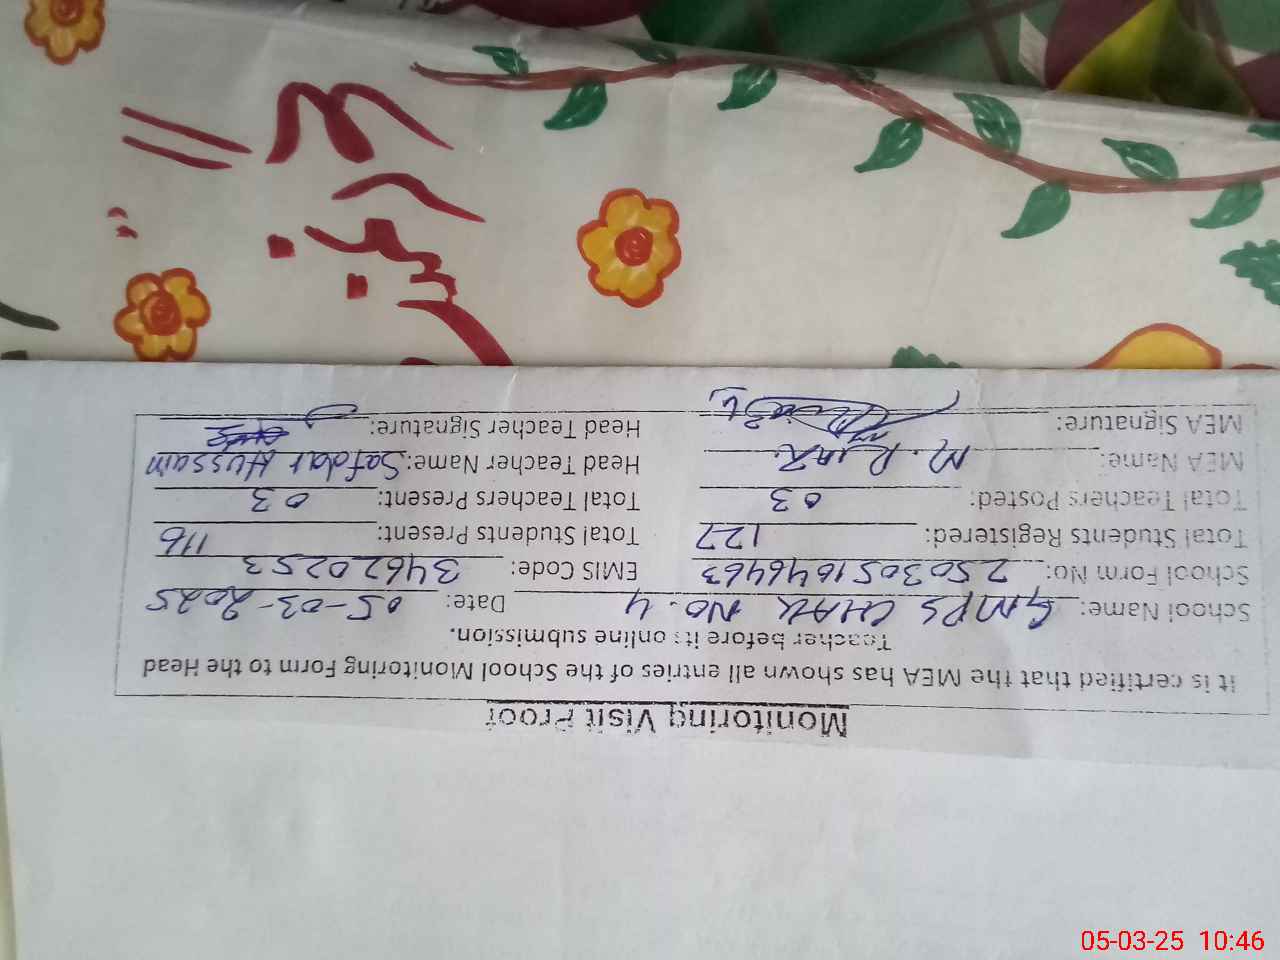 Monitoring Visit Proof
It is certified that the MEA has shown all entries of the School Monitoring Form to the Head
Teacher before its online submission.
School Name: GMPS CHAK No. 4 Date: 05-03-2025
School Form No: 2503051046463 EMIS Code: 34620253
Total Students Registered: 127 Total Students Present: 116
Total Teachers Posted: 03 Total Teachers Present: 03
MEA Name: M. Riaz Head Teacher Name: Safdar Hussain
MEA Signature: Head Teacher Signature:
05-03-25 10:46